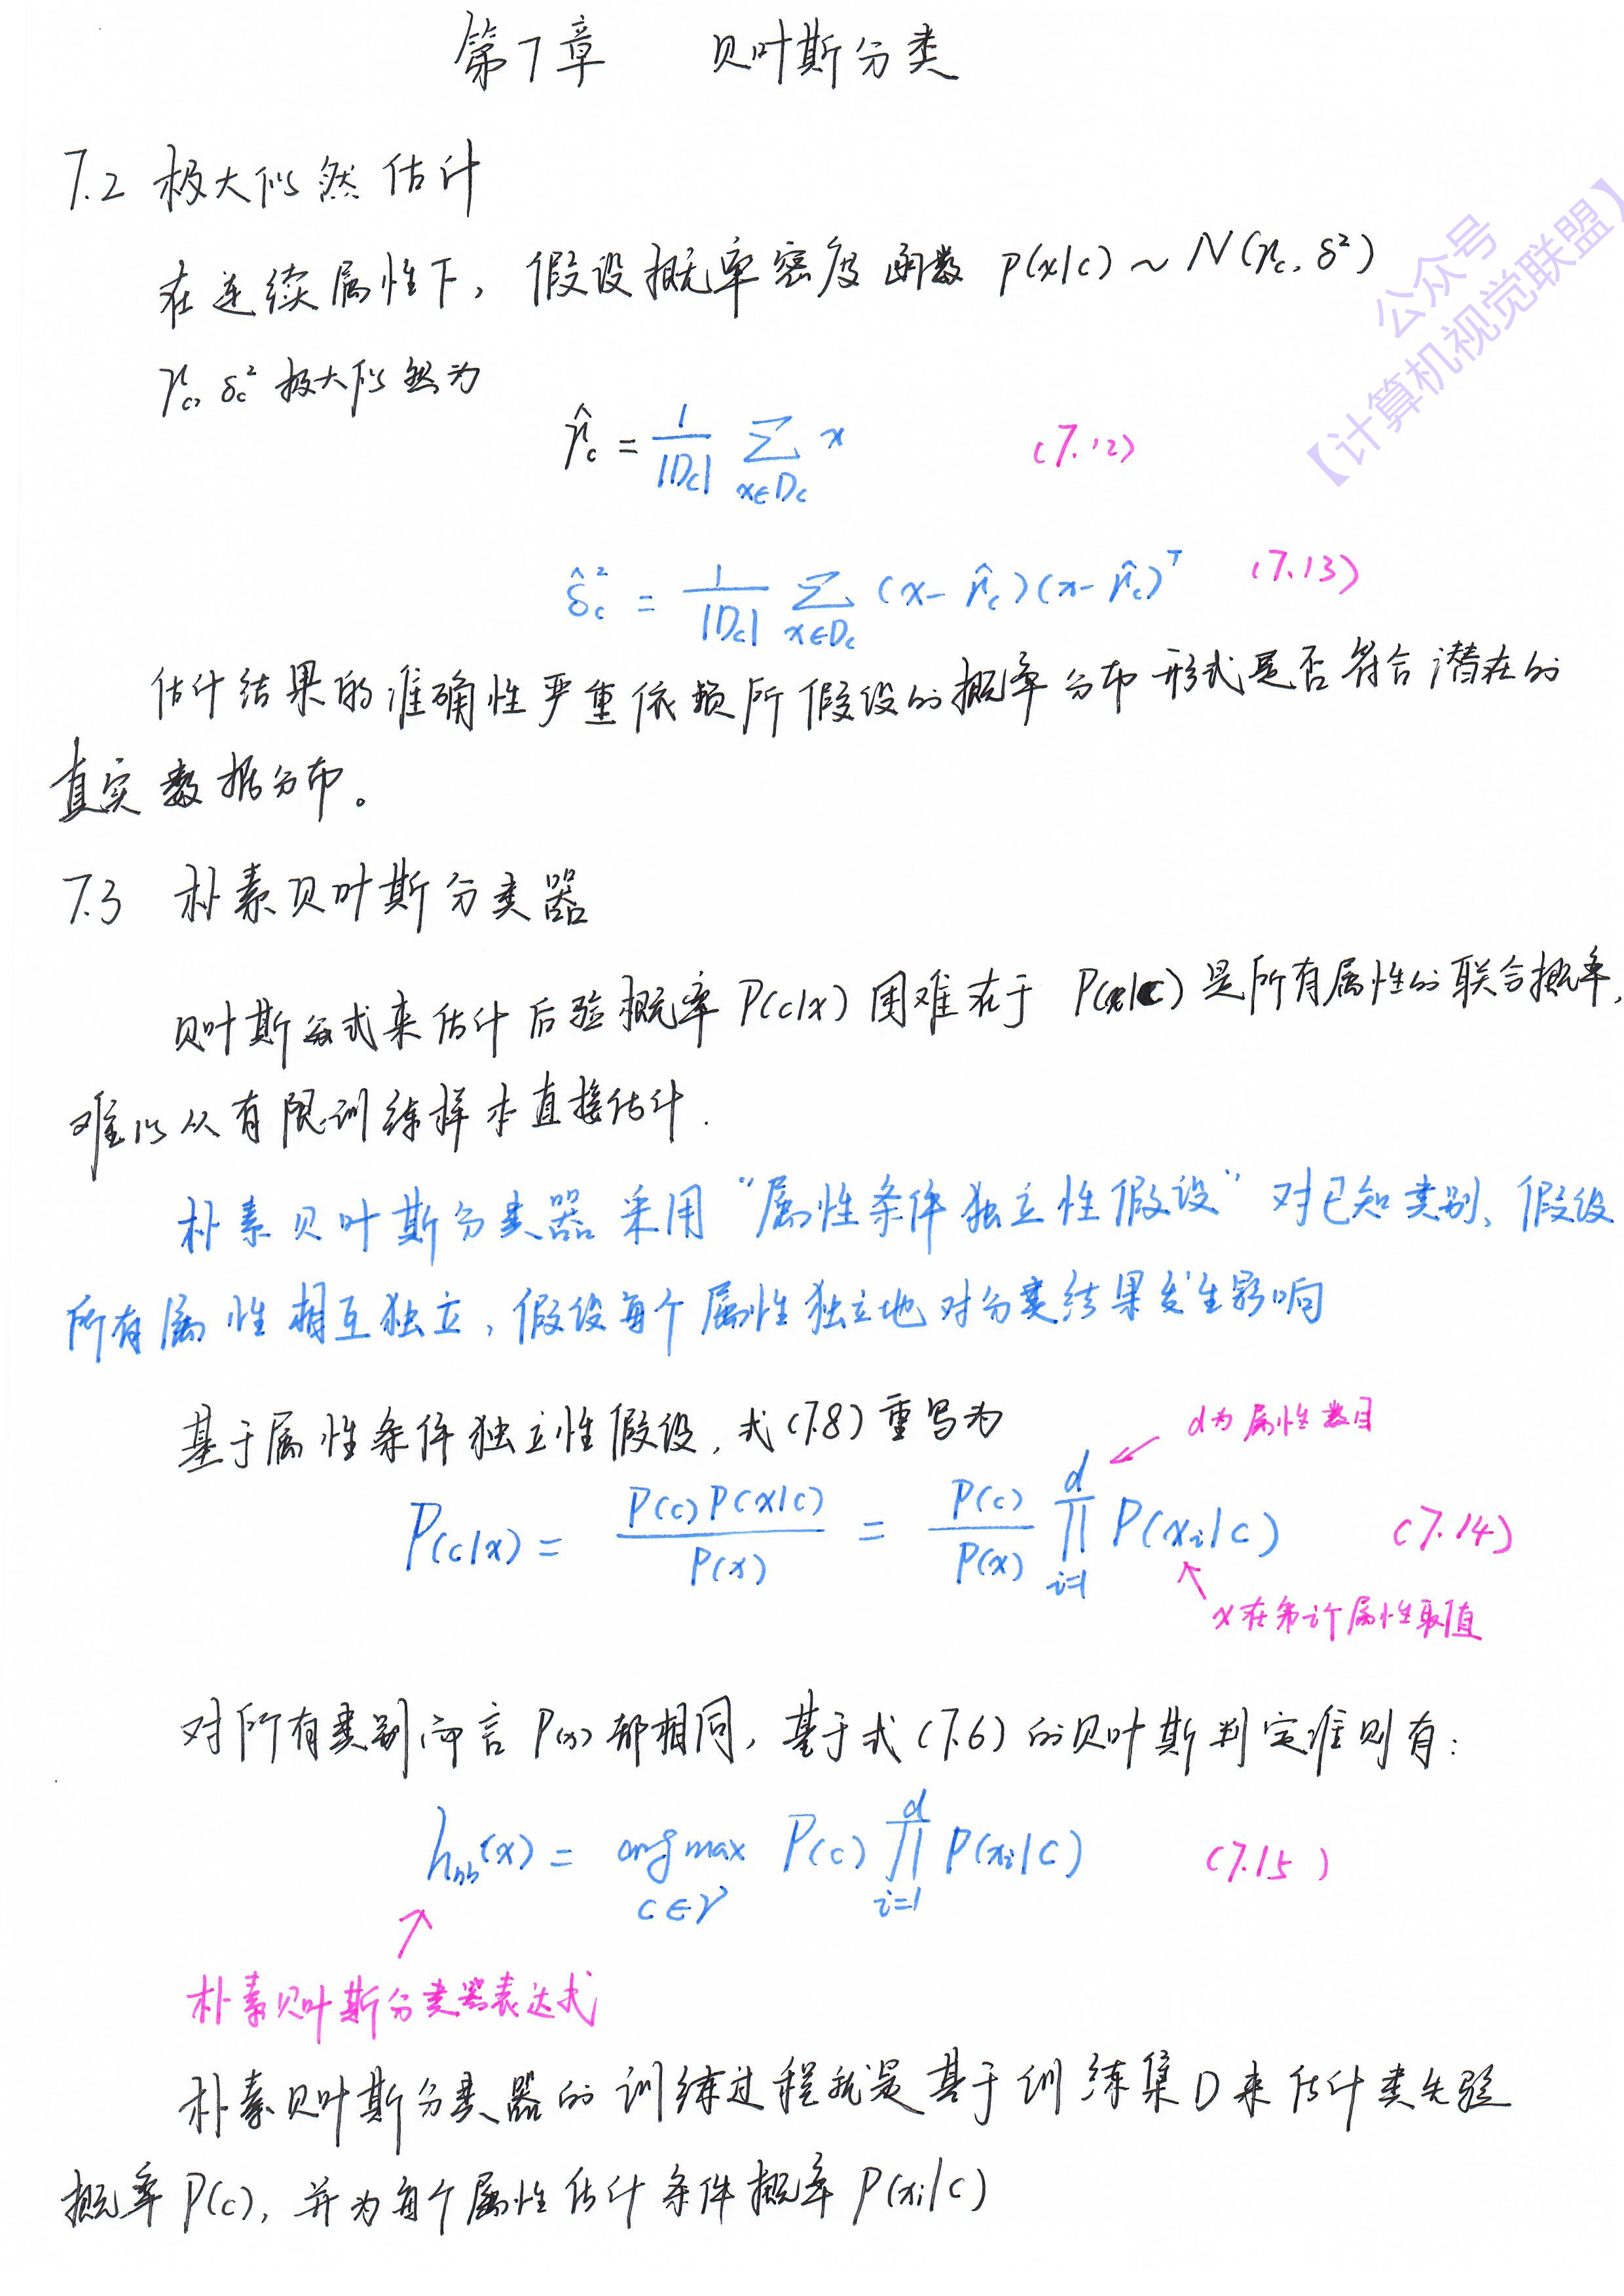 第7章 贝叶斯分类
7.2 极大似然估计
在连续属性下，假设概率密度函数 p(x|c) ~ N(μc, δ²)
μc, δc² 极大似然为
μ̂c = 1/|Dc| ∑x∈Dc x (7.12)
δ̂c² = 1/|Dc| ∑x∈Dc (x-μ̂c)(x-μ̂c)ᵀ (7.13)
估计结果的准确性严重依赖所假设的概率分布形式是否符合潜在的
真实数据分布。
7.3 朴素贝叶斯分类器
贝叶斯公式来估计后验概率P(c|x)困难在于 P(x|c)是所有属性的联合概率,
难以从有限训练样本直接估计.
朴素贝叶斯分类器采用“属性条件独立性假设”对已知类别、假设
所有属性相互独立，假设每个属性独立地对分类结果发生影响
基于属性条件独立性假设，式(7.8)重写为
d为属性数目
P(c|x) = P(c)P(x|c)/P(x) = P(c)/P(x) ∏i=1d P(xi|c) (7.14)
x在第i个属性取值
对所有类别而言 P(x) 都相同，基于式(7.6)的贝叶斯判定准则有:
hnb(x) = arg max c∈𝒴 P(c) ∏i=1d P(xi|c) (7.15)
朴素贝叶斯分类器表达式
朴素贝叶斯分类器的训练过程就是基于训练集D来估计类先验
概率P(c), 并为每个属性估计条件概率P(xi|c)
公众号
【计算机视觉联盟】